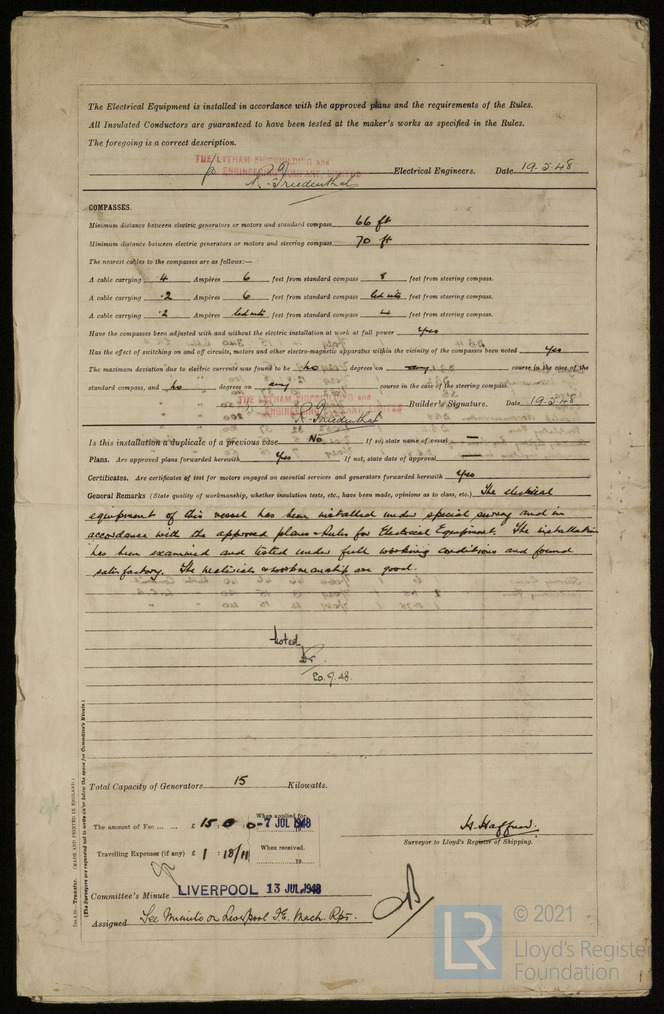 The Electrical Equipment is installed in accordance with the approved plans and the requirements of the Rules.
All Insulated Conductors are guaranteed to have been tested at the maker's works as specified in the Rules.
The foregoing is a correct description.
THE LYTHAM SHIPBUILDING and
ENGINEERING COMPANY, LIMITED
R. Friedenthal Electrical Engineers. Date 19.5.48
COMPASSES.
Minimum distance between electric generators or motors and standard compass 66 ft
Minimum distance between electric generators or motors and steering compass 70 ft
The nearest cables to the compasses are as follows:—
A cable carrying 4 Ampères 6 feet from standard compass 8 feet from steering compass.
A cable carrying .2 Ampères 6 feet from standard compass led into feet from steering compass.
A cable carrying .2 Ampères led into feet from standard compass 4 feet from steering compass.
Have the compasses been adjusted with and without the electric installation at work at full power Yes
Has the effect of switching on and off circuits, motors and other electro-magnetic apparatus within the vicinity of the compasses been noted Yes
The maximum deviation due to electric currents was found to be no degrees on any course in the case of the
standard compass, and no degrees on any course in the case of the steering compass.
THE LYTHAM SHIPBUILDING and
ENGINEERING COMPANY, LIMITED
R. Friedenthal Builder's Signature. Date 19.5.48
Is this installation a duplicate of a previous case No If so, state name of vessel —
Plans. Are approved plans forwarded herewith Yes If not, state date of approval —
Certificates. Are certificates of test for motors engaged on essential services and generators forwarded herewith Yes
General Remarks (State quality of workmanship, whether insulation tests, etc., have been made, opinions as to class, etc.) The electrical
equipment of this vessel has been installed under special survey and in
accordance with the approved plans & Rules for Electrical Equipment. The installation
has been examined and tested under full working conditions and found
satisfactory. The materials & workmanship are good.
Noted
20.9.48.
Total Capacity of Generators 15 Kilowatts.
The amount of Fee ... ... £ 15 : 0 : 0 When applied for, -7 JUL 1948
H. Haffner.
Surveyor to Lloyd's Register of Shipping.
Travelling Expenses (if any) £ 1 : 18/11 When received. 19
Committee's Minute LIVERPOOL 13 JUL 1948
Assigned See Minute on Liverpool F.E. Mach. Rpt.
Transfer. (MADE AND PRINTED IN ENGLAND.)
(The Surveyors are requested not to write on or below the space for Committee's Minute.)
LR
© 2021
Lloyd's Register
Foundation